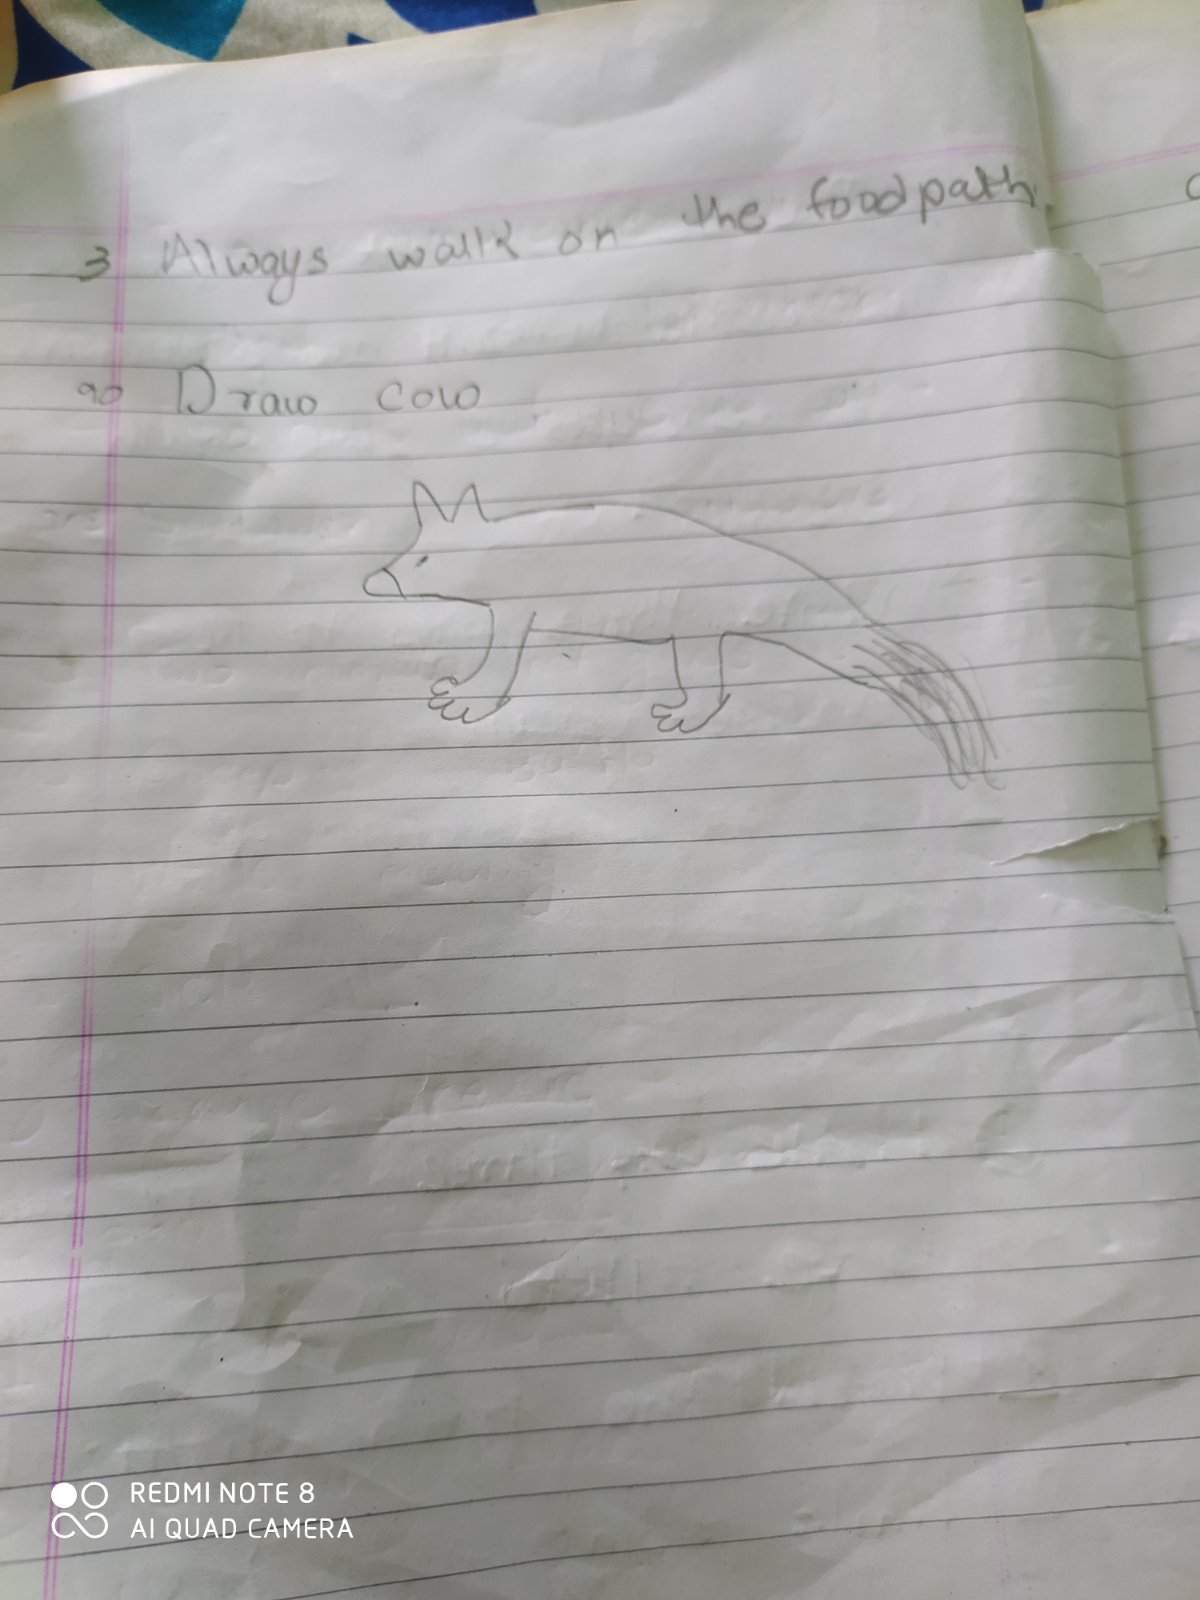 3 Always walk on the foodpath.
90 Draw cow
REDMI NOTE 8
AI QUAD CAMERA